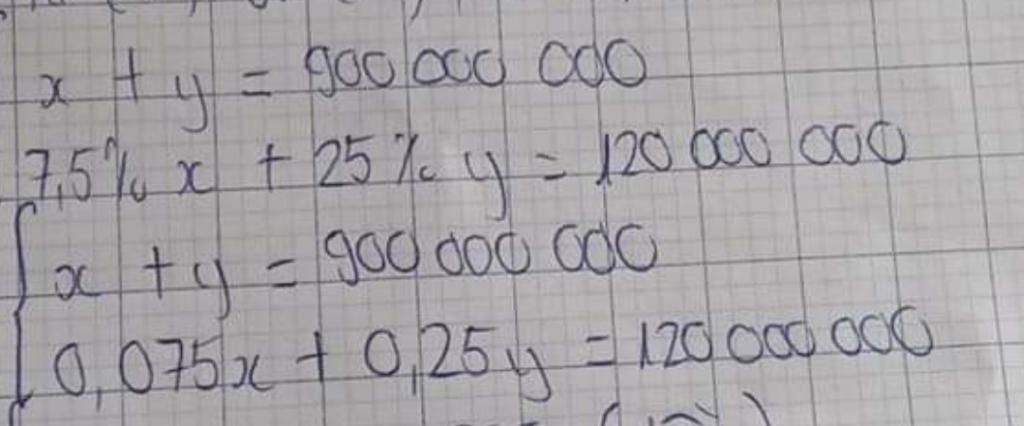 x + y = 900 000 000
7,5% x + 25% y = 120 000 000
x + y = 900 000 000
0,075x + 0,25y = 120 000 000